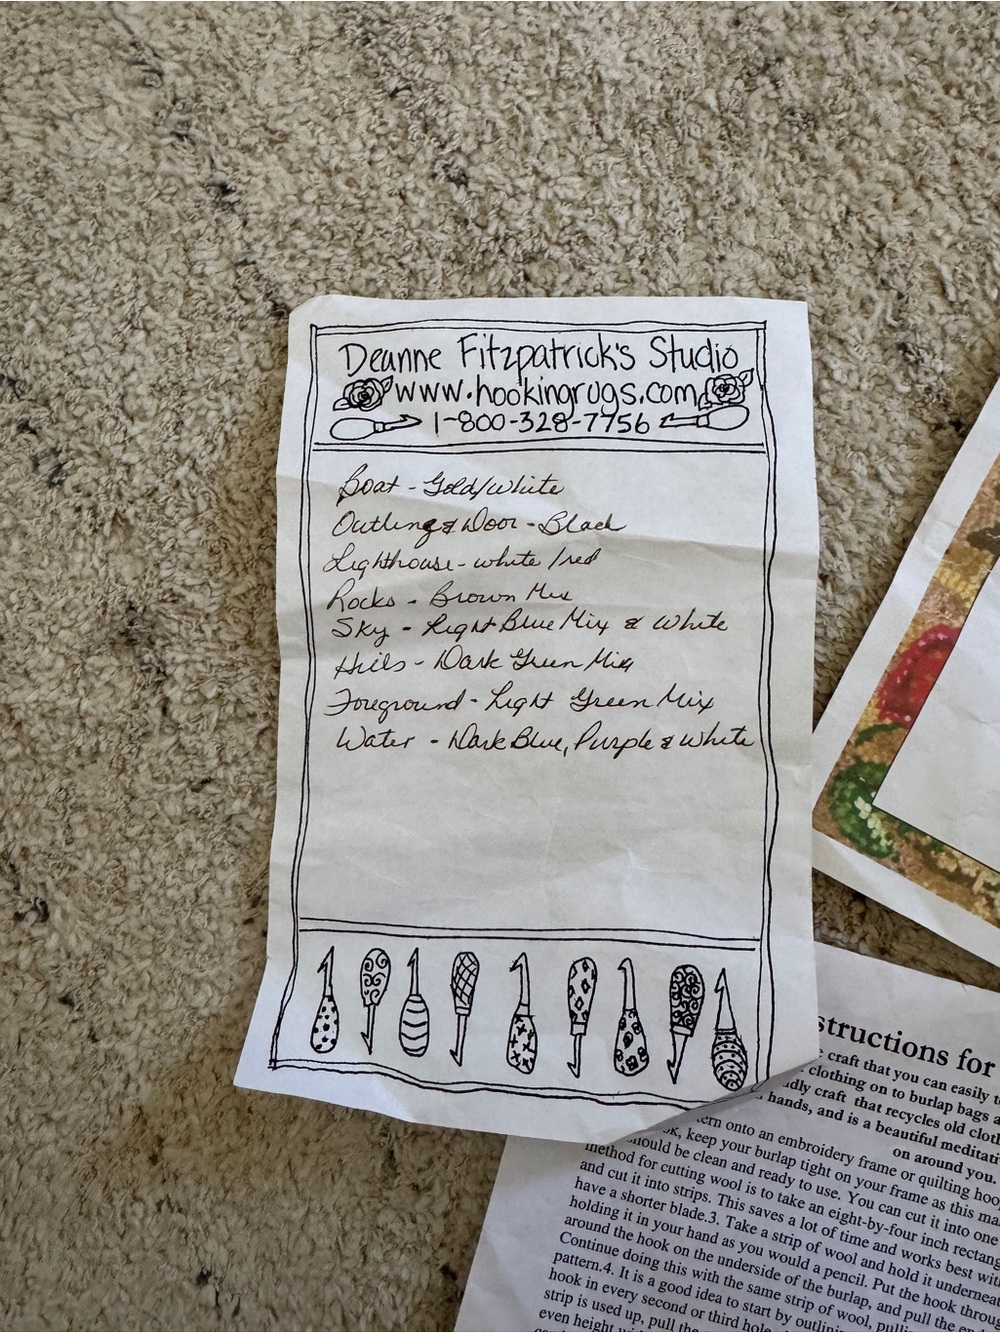 Deanne Fitzpatrick's Studio
www.hookingrugs.com
1-800-328-7756
Boat - Gold/White
Outling & Door - Black
Lighthouse - white/red
Rocks - Brown Mix
Sky - Light Blue Mix & White
Hills - Dark Green Mix
Foreground - Light Green Mix
Water - Dark Blue, Purple & White
structions for
craft that you can easily
clothing on to burlap bags
craft that recycles old
hands, and is a beautiful
on around you.
onto an embroidery frame or quilting
keep your burlap tight on your frame as this
should be clean and ready to use. You can cut it into one
method for cutting wool is to take an eight-by-four inch
and cut it into strips. This saves a lot of time and works best
have a shorter blade.3. Take a strip of wool and hold it
holding it in your hand as you would a pencil. Put the hook
around the hook on the underside of the burlap, and pull the
Continue doing this with the same strip of wool,
pattern.4. It is a good idea to start by
hook in every second or third hole
strip is used up, pull the
even height